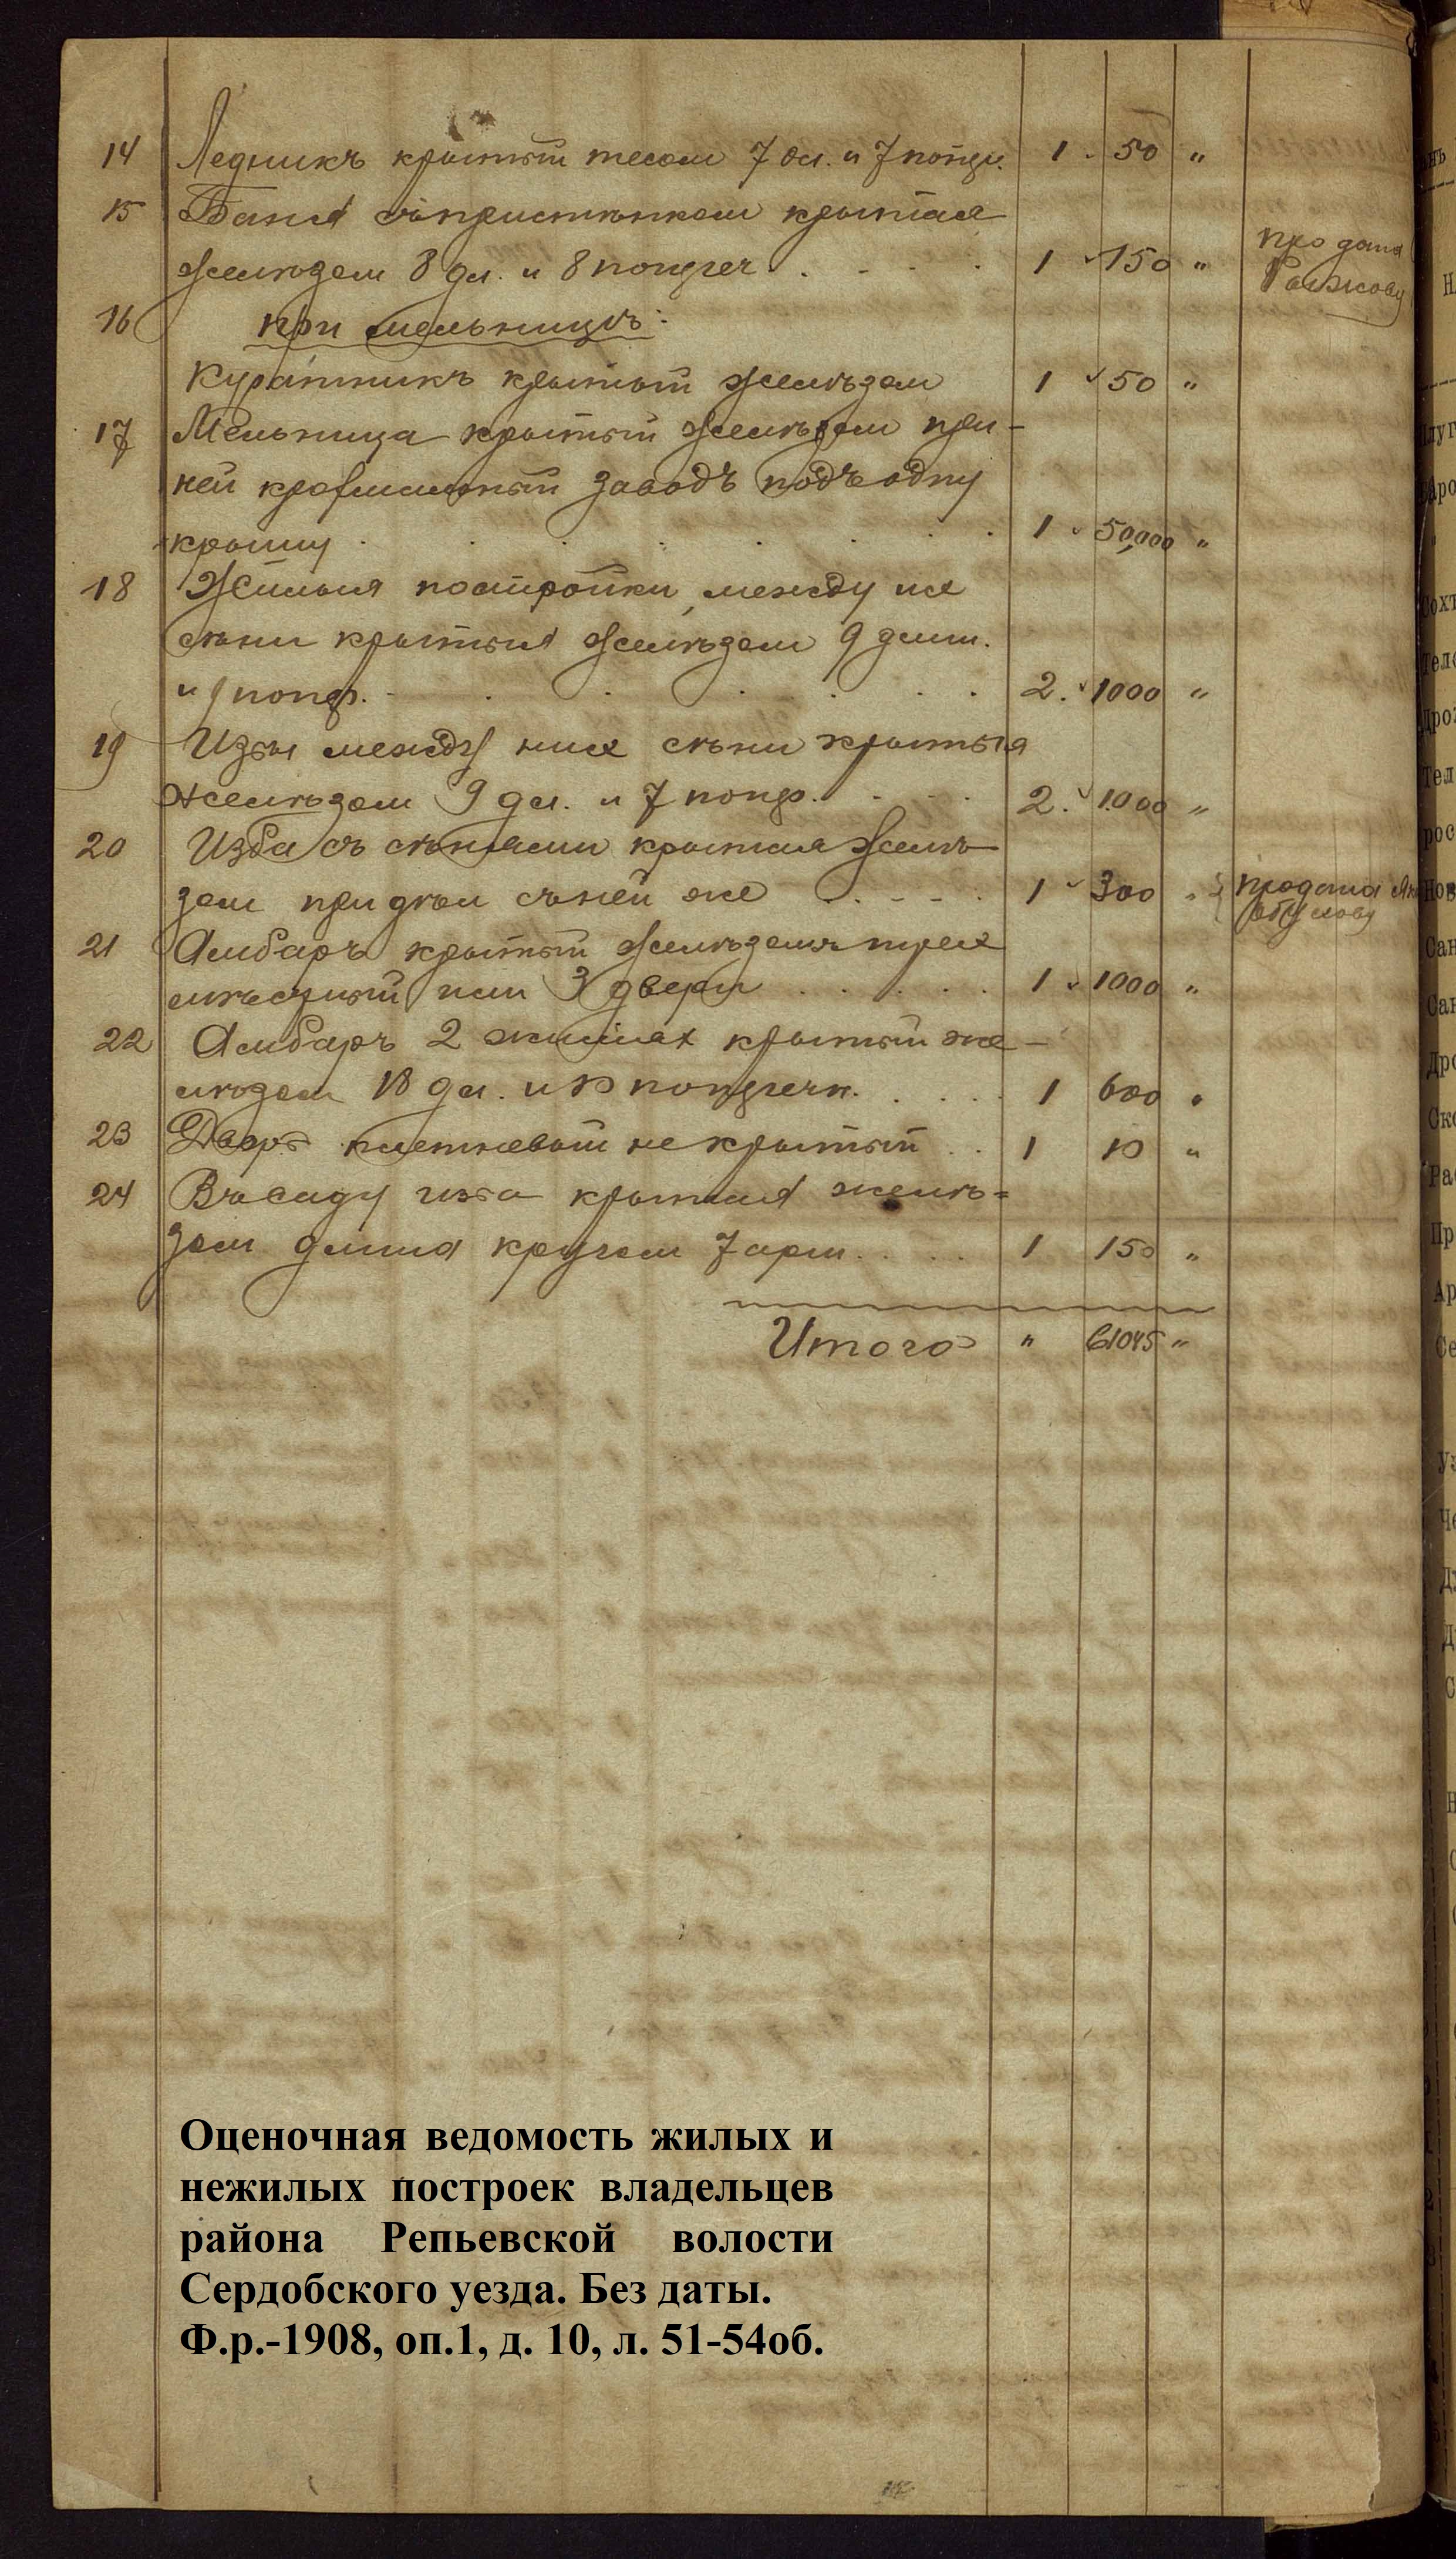 14 Ледникъ крытый тесом 7 дл. и 7 попер. 1 50 "
15 Баня съ пристенком крытая
железом 8 дл. и 8 попереч. . . . . 1 150 " продана
16 при мельницѣ:
Куратникъ крытый желѣзом 1 50 "
17 Мельница крытый желѣзом при-
ней крахмальный заводъ подъ одну
крышу . . . . . . . 1 50,000 "
18 Жилыя постройки, между их
сѣни крытыя желѣзом 9 длин.
и 9 попер. . . . . . . 2. 1000 "
19 Избы между них сѣни крытыя
желѣзом 9 дл. и 7 попер. . . . 2. 1000 "
20 Изба съ сѣнями крытая желѣ-
зом при двои сѣней же . . - - . 1 300 " продана
21 Амбаръ крытый желѣзом трех
мѣсный или 3 двери . . . . . . 1 1000 "
22 Амбаръ 2 крытый же-
лѣзом 18 дл. и 10 попереч. . . . . 1 600 "
23 Дворъ плетневый не крытый . . 1 10 "
24 Въ саду изба крытая желѣ=
зом длина кругом 7 арш. . . . . 1 150 "
Итого " 61045 "
Оценочная ведомость жилых и
нежилых построек владельцев
района Репьевской волости
Сердобского уезда. Без даты.
Ф.р.-1908, оп.1, д. 10, л. 51-54об.